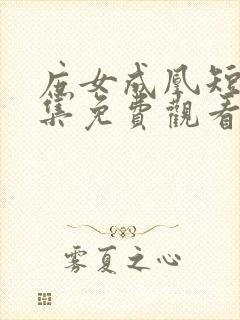 庶女成凰短
集免費觀看
雾夏之心